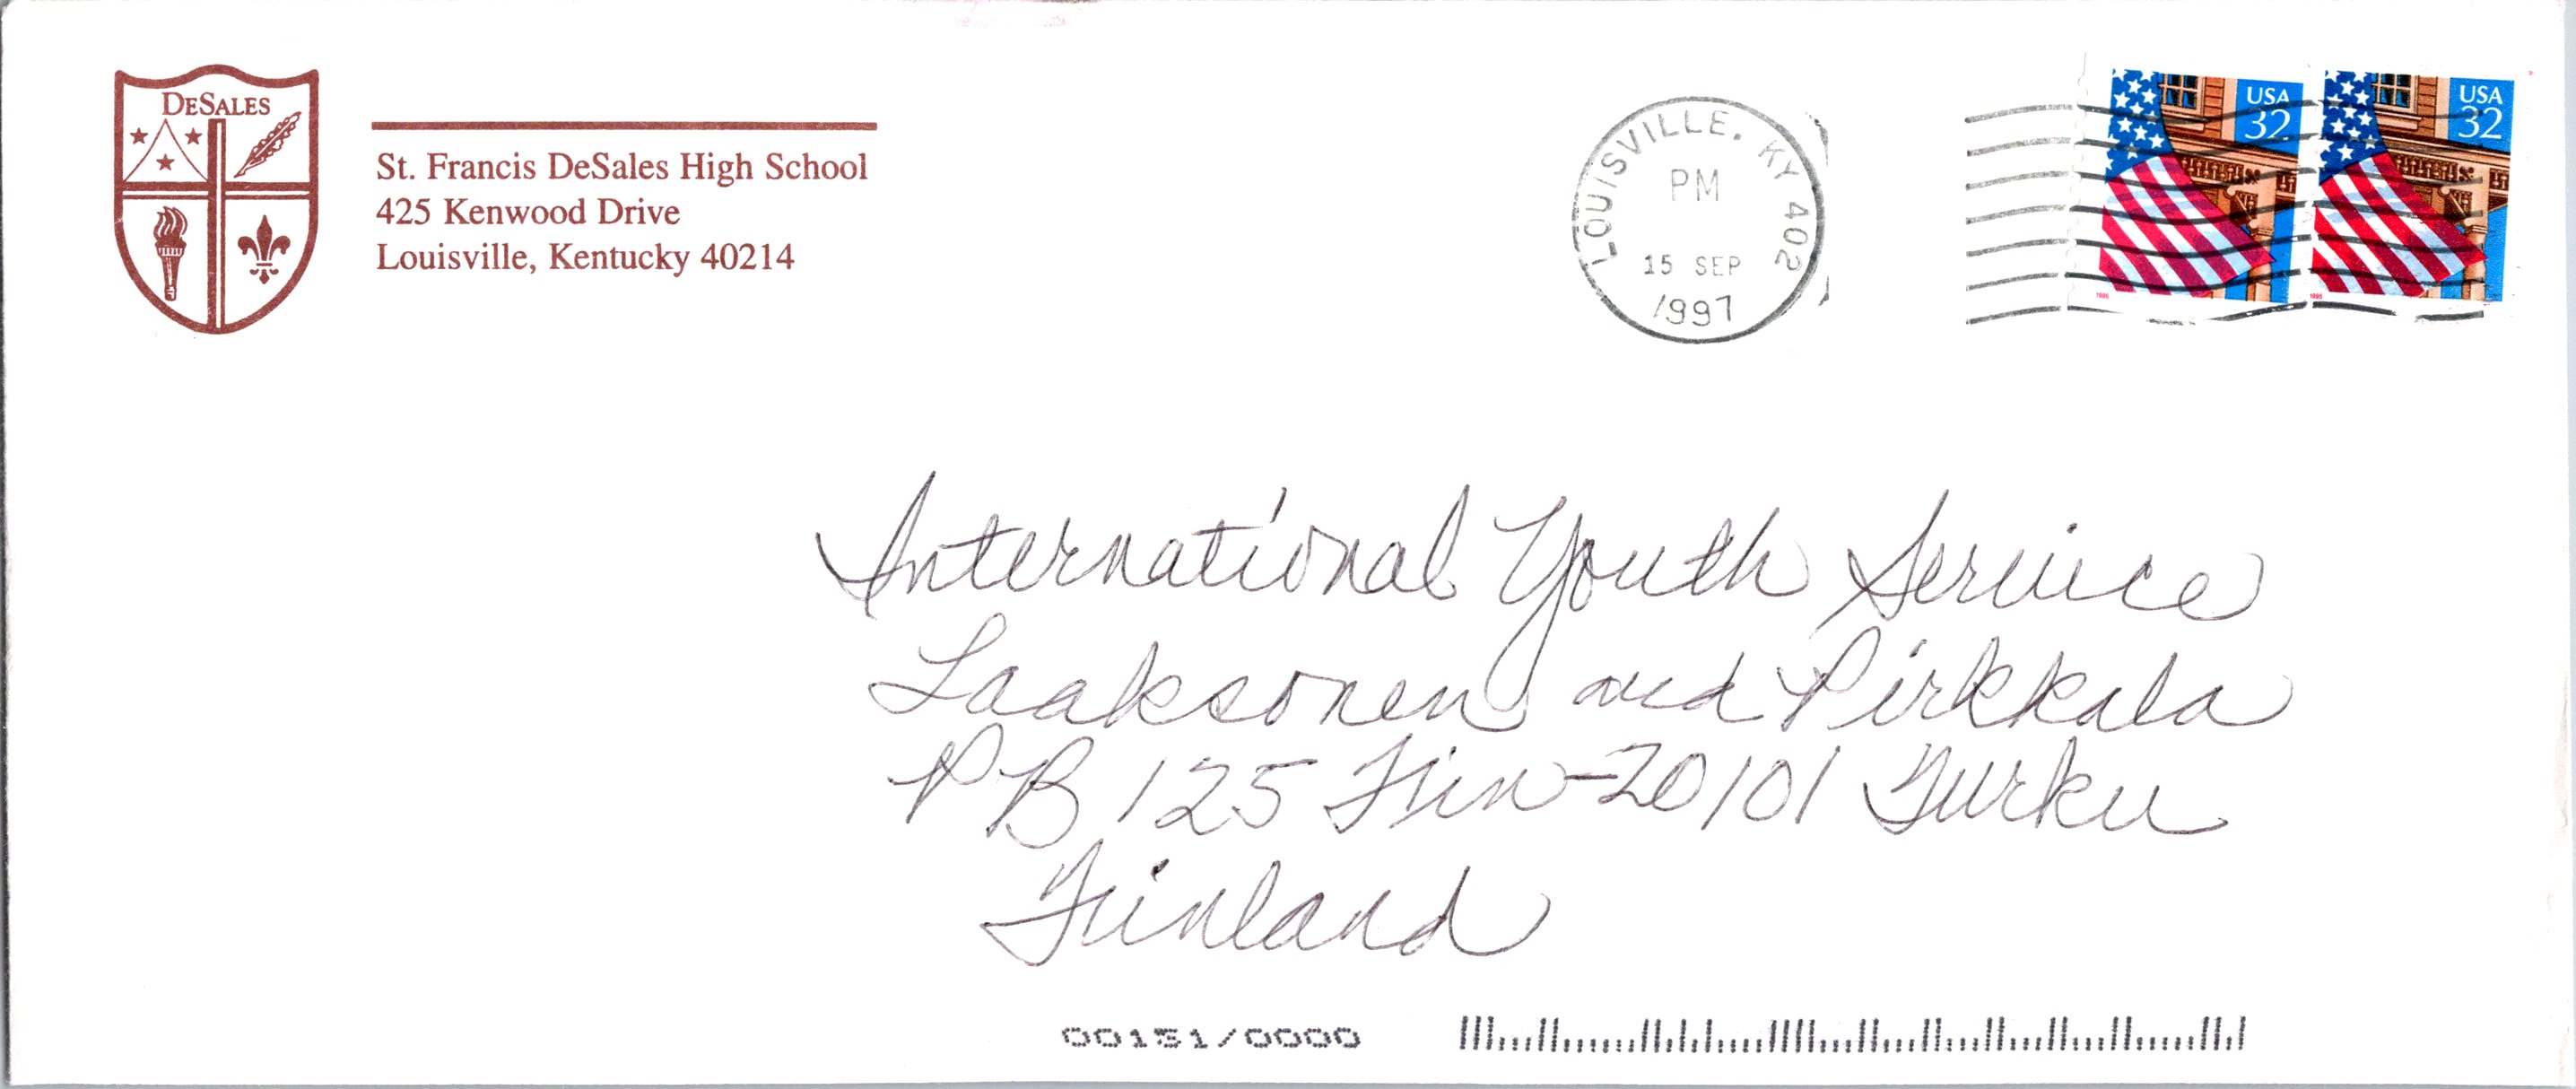 DeSales
St. Francis DeSales High School
425 Kenwood Drive
Louisville, Kentucky 40214
LOUISVILLE, KY 402
PM
15 SEP
1997
USA
32
USA
32
1995
1995
International Youth Service
Laaksonen and Pirkkala
PB 125 Fin-20101 Turku
Finland
00151/0000